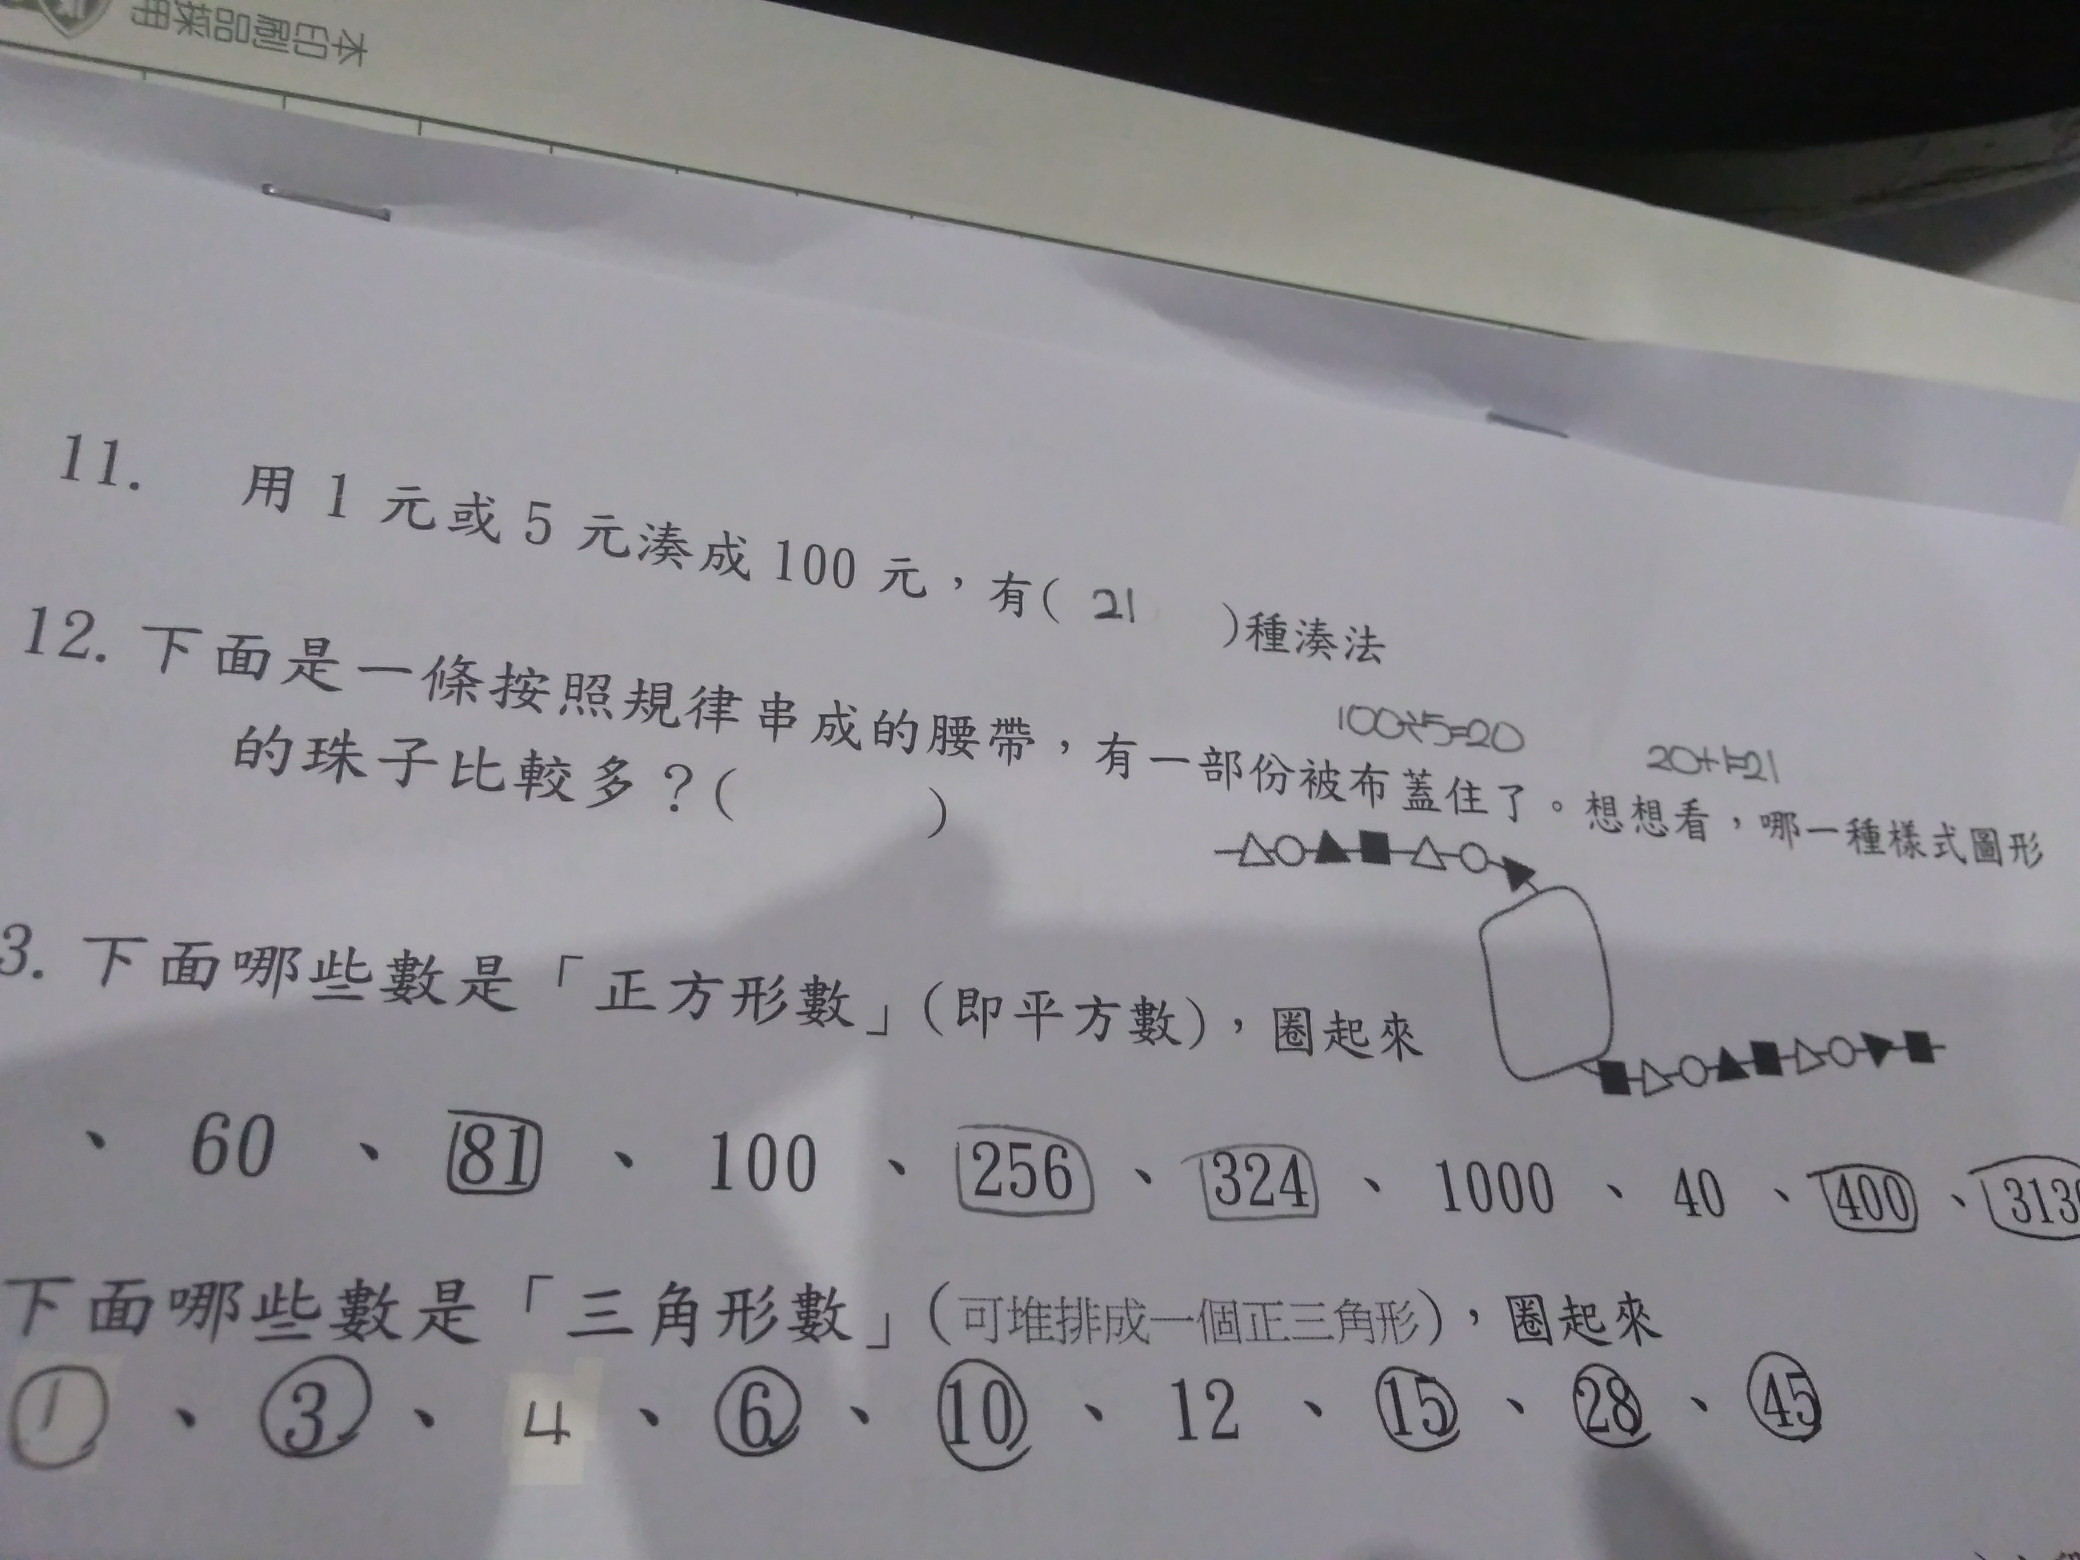 本印刷品採用
11. 用 1 元或 5 元湊成 100 元，有( 21 )種湊法
100÷5=20 20+1=21
12. 下面是一條按照規律串成的腰帶，有一部份被布蓋住了。想想看，哪一種樣式圖形
的珠子比較多？( )
3. 下面哪些數是「正方形數」(即平方數)，圈起來
、 60 、 81 、 100 、 256 、 324 、 1000 、 40 、 400 、 313
下面哪些數是「三角形數」(可堆排成一個正三角形)，圈起來
1 、 3 、 4 、 6 、 10 、 12 、 15 、 28 、 45